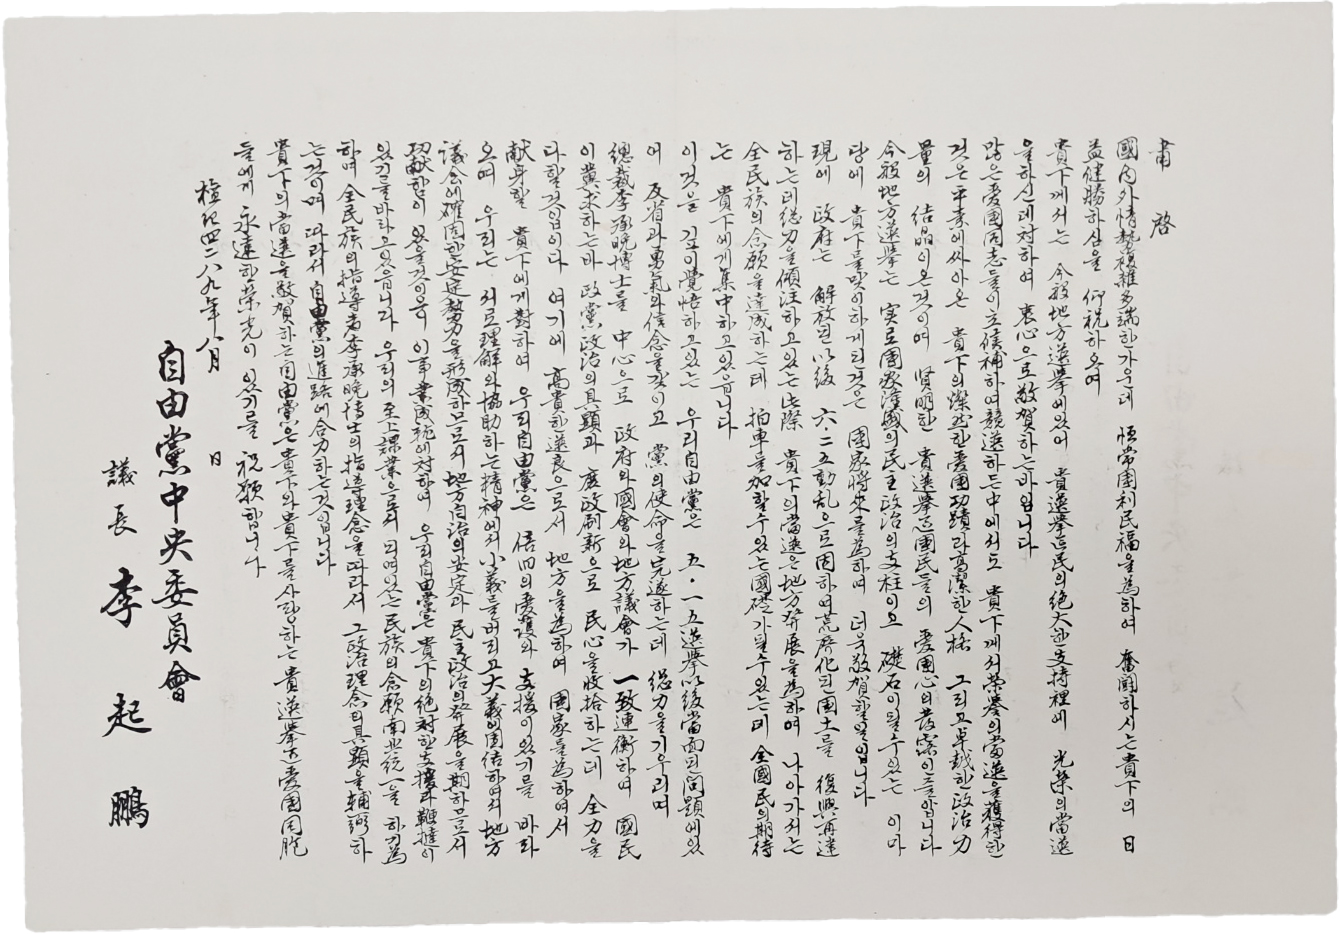 肅啓
國內外情勢複雜多端한가운데 恒常國利民福을爲하여 奮鬪하시는貴下의 日
益健勝하심을 仰祝하오며
貴下께서는 今般地方選擧에있어 貴選擧區民의絶大한支持裡에 光榮의當選
을하신데対하여 衷心으로敬賀하는바입니다
많은愛國同志들이立候補하여競選하는中에서도 貴下께서榮譽의當選을獲得한
것은平素에싸아온 貴下의燦然한愛國功蹟과高潔한人格 그리고卓越한政治力
量의 結晶이온것이며 賢明한 貴選擧区國民들의 愛國心의發露인줄압니다
今般地方選擧는 実로國家護國의民主政治의支柱이고 礎石이될수있는 이마
당에 貴下를맞이하게된것은 國家將來를爲하여 더욱敬賀할일입니다
現에 政府는 解放된以後 六二五動乱으로因하여荒廢化된國土를 復興再建
하는데総力을傾注하고있는此際 貴下의當選은地方發展을爲하여 나아가서는
全民族의念願을達成하는데 拍車를加할수있는國礎가될수있는데 全國民의期待
는 貴下에게集中하고있읍니다
이것을 깊이覺悟하고있는 우리自由黨은 五·一五選擧以後當面된問題에있
어 反省과勇氣와信念을갖이고 黨의使命을完遂하는데 総力을기우리며
總裁李承晩博士를 中心으로 政府와國會와地方議會가 一致連衡하여 國民
이冀求하는바 政黨政治의具顯과 庶政刷新으로 民心을收拾하는데 全力을
다할것입니다 여기에 高貴한選良으로서 地方을爲하여 國家를爲하여서
献身할 貴下에게對하여 우리自由黨은 倍旧의愛護와 支援이있기를 바라
오며 우리는 서로理解와協助하는精神에서小義를버리고大義에團結하여서地方
議會에確固한安定勢力을形成하므로서 地方自治의安定과民主政治의發展을期하므로서
功献함이 있을것이옵고 이事業成就에対하여 우리自由黨은 貴下의絶対한支援과鞭撻이
있기를바라고있읍니다 우리의 至上課業으로서 되여있는 民族의念願南北統一을 하기爲
하여 全民族의指導者李承晩博士의指導理念을따라서 그政治理念의具顯을輔弼하
는것이며 따라서 自由黨의進路에合力하는것입니다
貴下의當選을敬賀하는自由黨은貴下와貴下를사랑하는 貴選擧区愛國同胞
들에게 永遠한榮光이 있기를 祝願합니다
檀紀四二八九年八月 日
自由黨中央委員會
議長 李起鵬